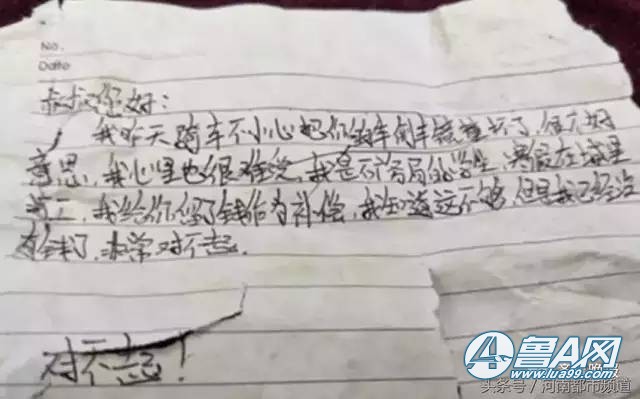 No.
Date
叔叔您好:
我昨天骑车不小心把你的车倒车镜撞坏了,很不好
意思,我心里也很难受,我是不济高的学生,寒假在城里
打工,我给你留了钱作为补偿,我知道远不够,但是我已经没
有钱了,非常对不起.
对不起!
鲁A网
www.lua99.com
头条号/河南都市频道